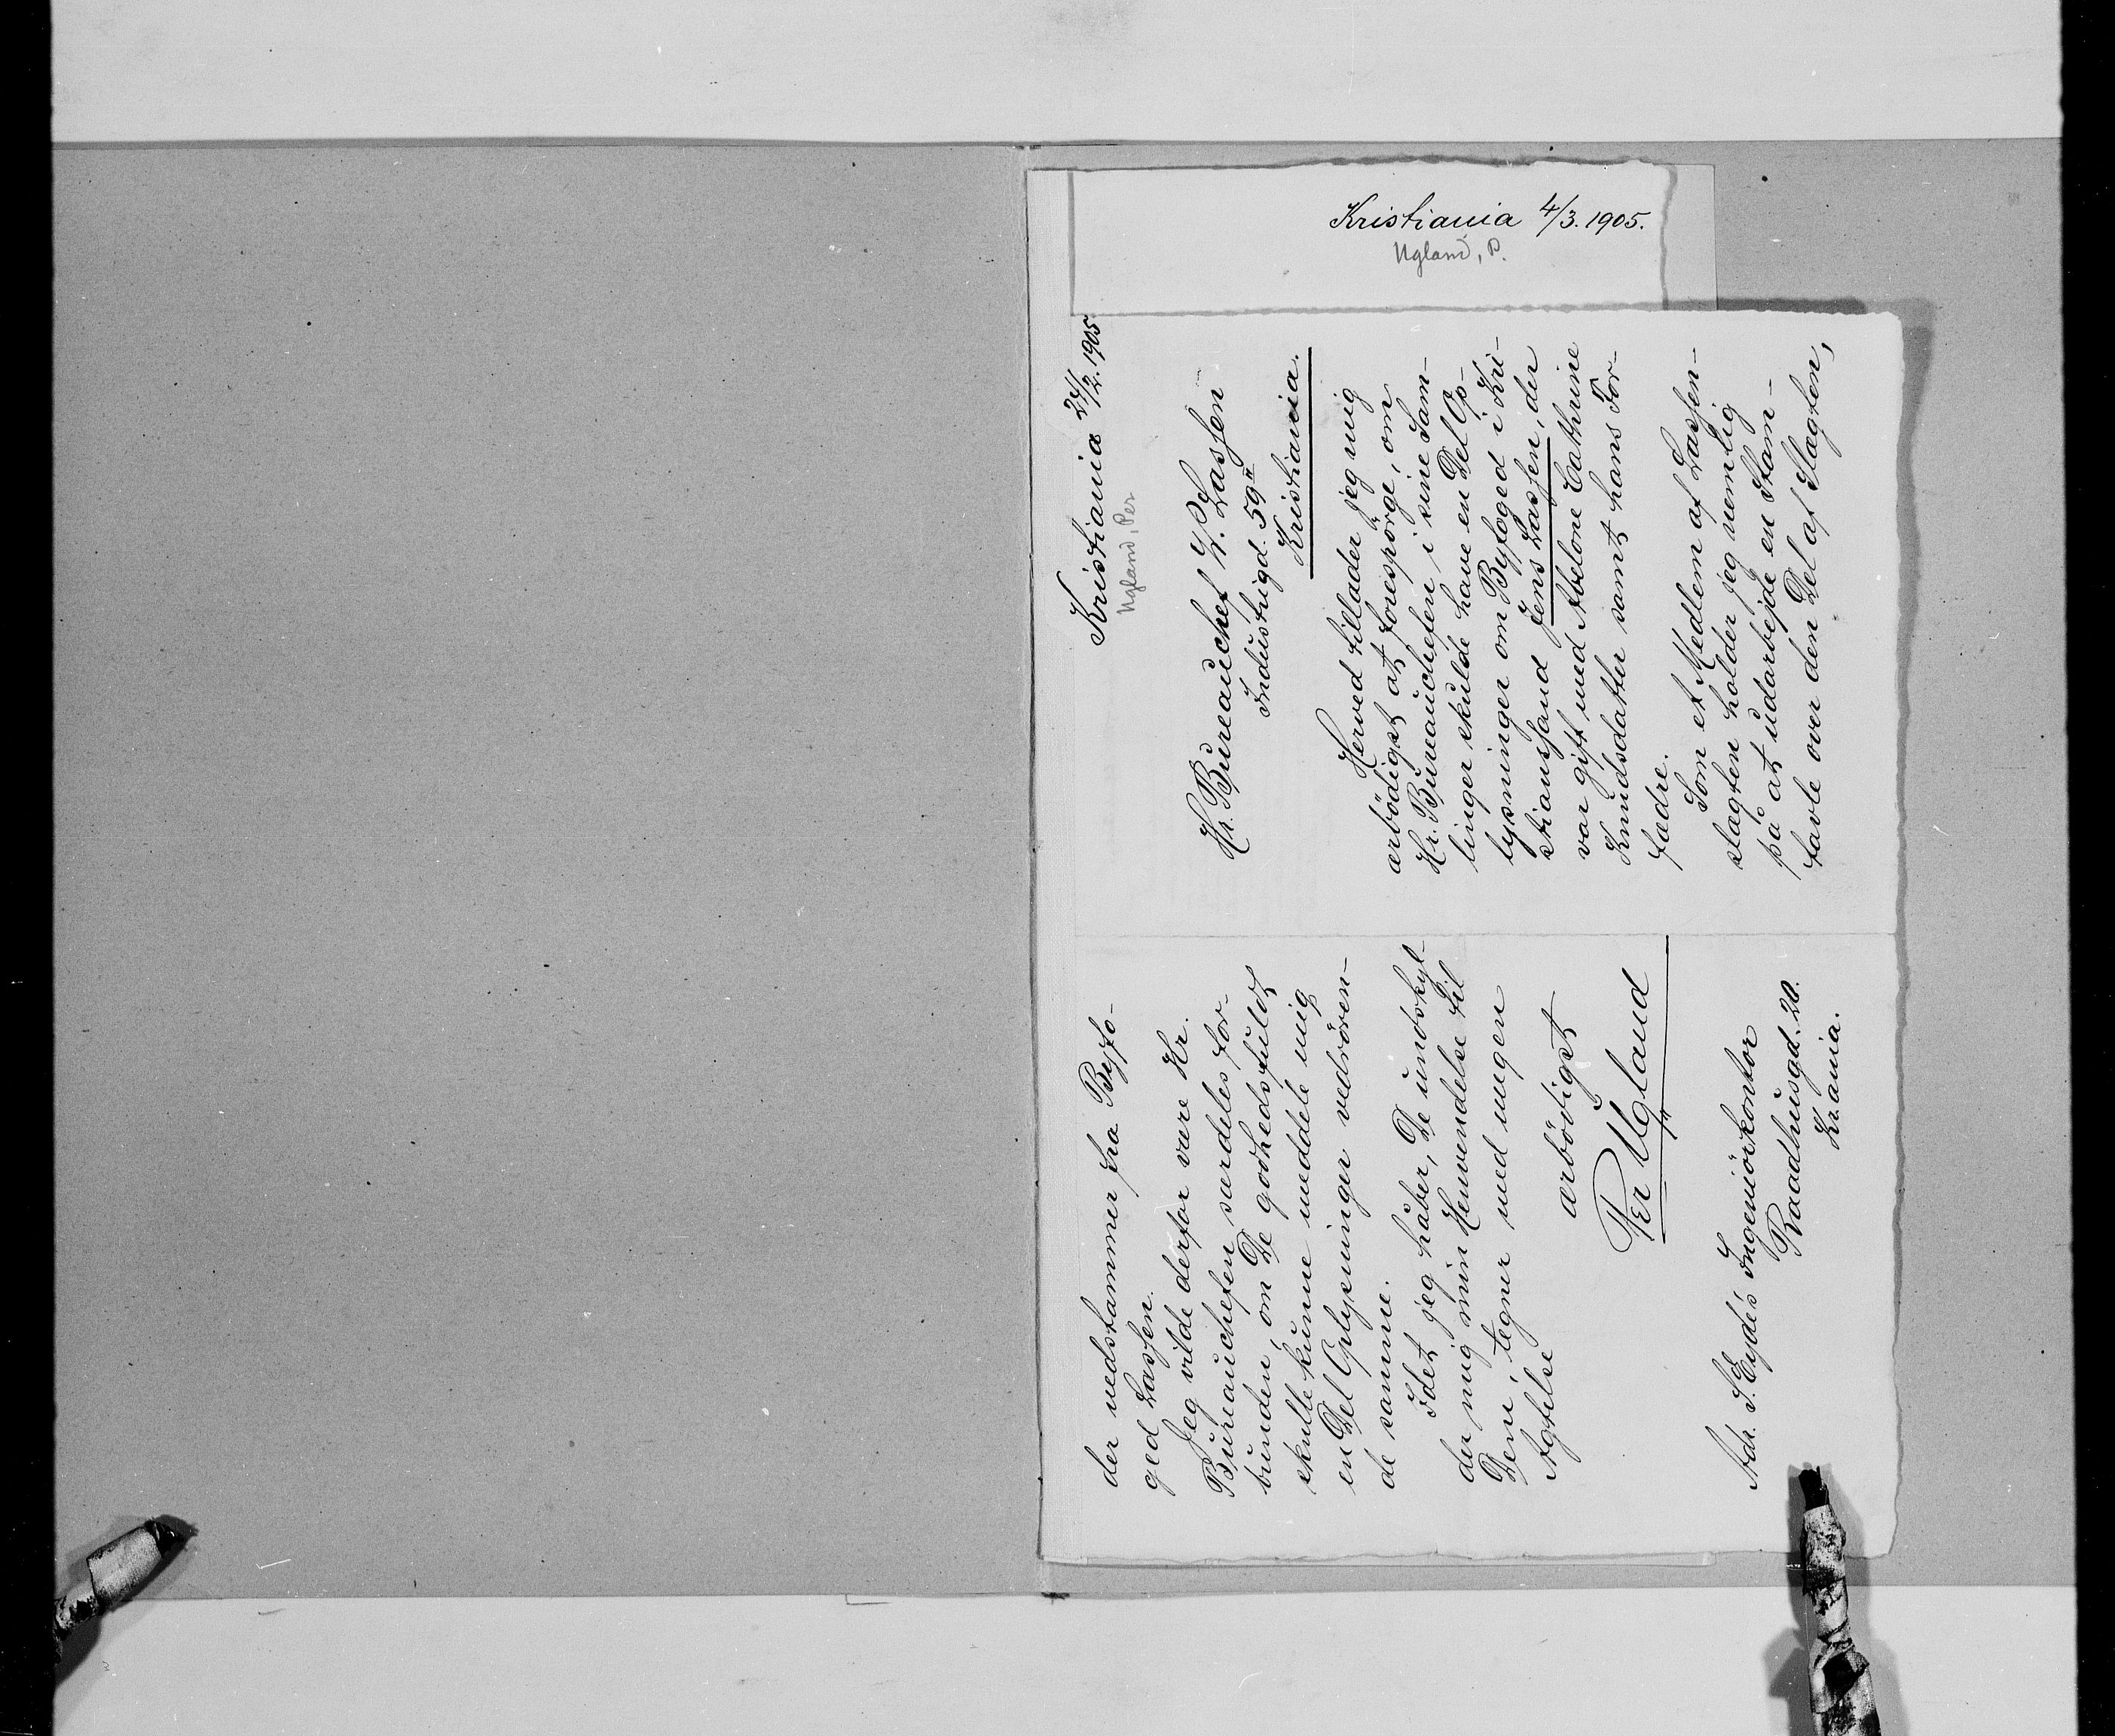 Kristiania 4/3. 1905.
Ugland, P.
Kristiania 24/2. 1905
Ugland, Per
Hr. Bureauchef W. Lassen
Industrigd. 59
Kristiania.
Herved tillader jeg mig
ærbödigst at forespörge, om
Hr. Bureauchefen i sine Sam-
linger skulde have en Del Op-
lysninger om Byfoged i Kri-
stianssand Jens Lassen, der
var gift med Abelone Cathrine
Knudsdatter samt hans For-
fædre.
Som et Medlem af Lassen-
slægten holder jeg nemlig
på at udarbejde en Stam-
tavle over den Del af Slægten,
der nedstammer fra Byfo-
ged Lassen.
Jeg vilde derfor være Hr.
Bureauchefen særdeles for-
bunden, om De godhedsfuldt
skulle kunne meddele mig
en Del Oplysninger vedrören-
de samme.
Idet jeg håber, De undskyl-
der mig min Henvendelse til
Dem, tegner med megen
Agtelse
ærbödigst
Per Ugland
Adr. S. Eydes Ingeniörkontor
Raadhusgd. 20.
Kr.ania.